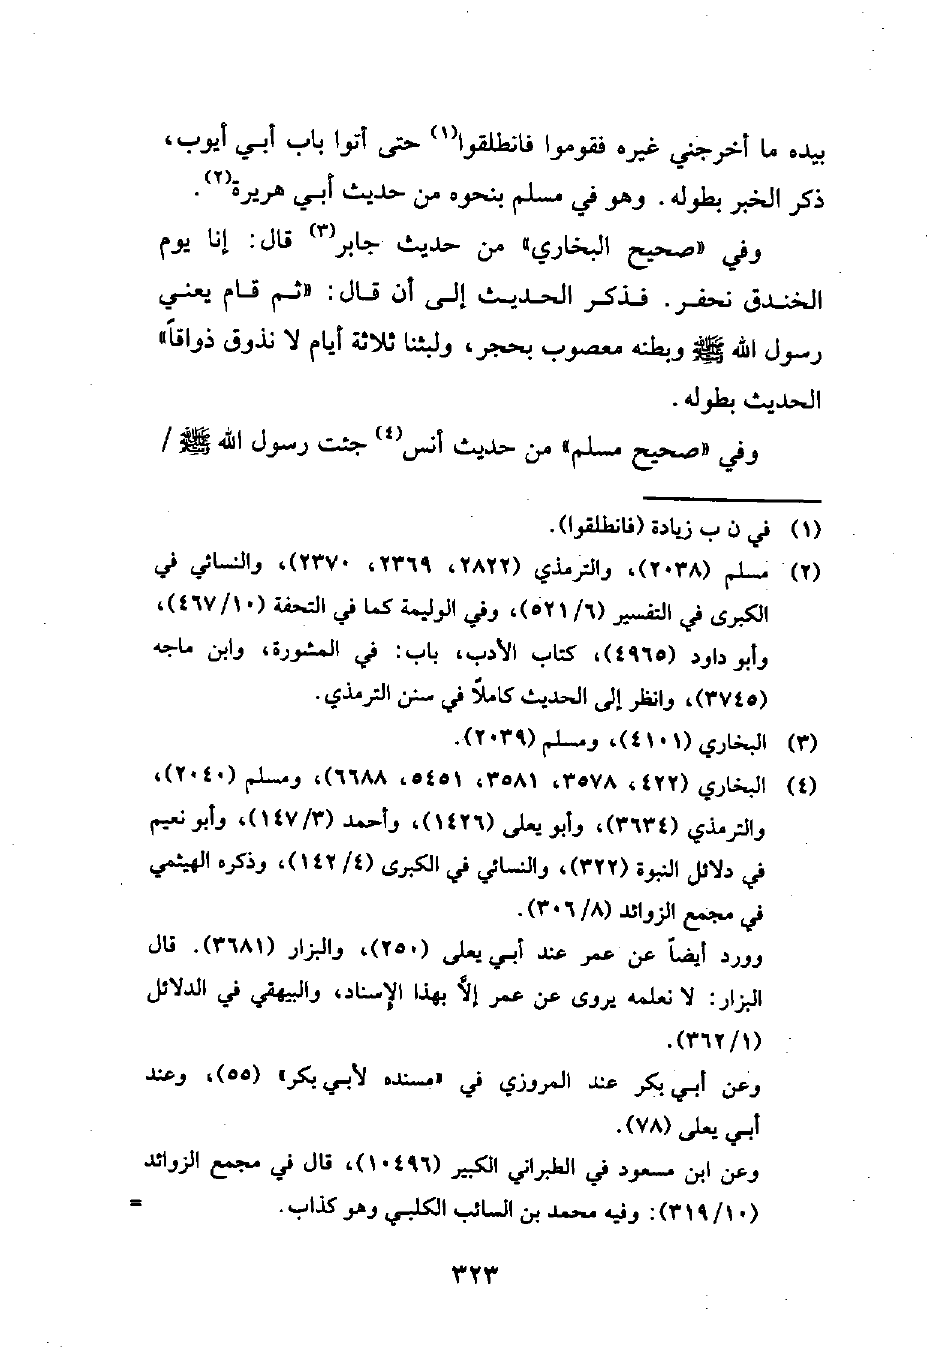 بيده ما أخرجني غيره فقوموا فانطلقوا(١) حتى أتوا باب أبي أيوب،
ذكر الخبر بطوله. وهو في مسلم بنحوه من حديث أبي هريرة(٢).
وفي «صحيح البخاري» من حديث جابر(٣) قال: إنا يوم
الخندق نحفر. فذكر الحديث إلى أن قال: «ثم قام يعني
رسول الله ﷺ وبطنه معصوب بحجر، ولبثنا ثلاثة أيام لا نذوق ذواقاً»
الحديث بطوله.
وفي «صحيح مسلم» من حديث أنس(٤) جئت رسول الله ﷺ /
(١) في ن ب زيادة (فانطلقوا).
(٢) مسلم (٢٠٣٨)، والترمذي (٢٨٢٢، ٢٣٦٩، ٢٣٧٠)، والنسائي في
الكبرى في التفسير (٥٢١/٦)، وفي الوليمة كما في التحفة (٤٦٧/١٠)،
وأبو داود (٤٩٦٥)، كتاب الأدب، باب: في المشورة، وابن ماجه
(٣٧٤٥)، وانظر إلى الحديث كاملاً في سنن الترمذي.
(٣) البخاري (٤١٠١)، ومسلم (٢٠٣٩).
(٤) البخاري (٤٢٢، ٣٥٧٨، ٣٥٨١، ٥٤٥١، ٦٦٨٨)، ومسلم (٢٠٤٠)،
والترمذي (٣٦٣٤)، وأبو يعلى (١٤٢٦)، وأحمد (١٤٧/٣)، وأبو نعيم
في دلائل النبوة (٣٢٢)، والنسائي في الكبرى (١٤٢/٤)، وذكره الهيثمي
في مجمع الزوائد (٣٠٦/٨).
وورد أيضاً عن عمر عند أبي يعلى (٢٥٠)، والبزار (٣٦٨١). قال
البزار: لا نعلمه يروى عن عمر إلاَّ بهذا الإِسناد، والبيهقي في الدلائل
(٣٦٢/١).
وعن أبي بكر عند المروزي في «مسنده لأبي بكر» (٥٥)، وعند
أبي يعلى (٧٨).
وعن ابن مسعود في الطبراني الكبير (١٠٤٩٦)، قال في مجمع الزوائد
(٣١٩/١٠): وفيه محمد بن السائب الكلبي وهو كذاب. =
٣٢٣